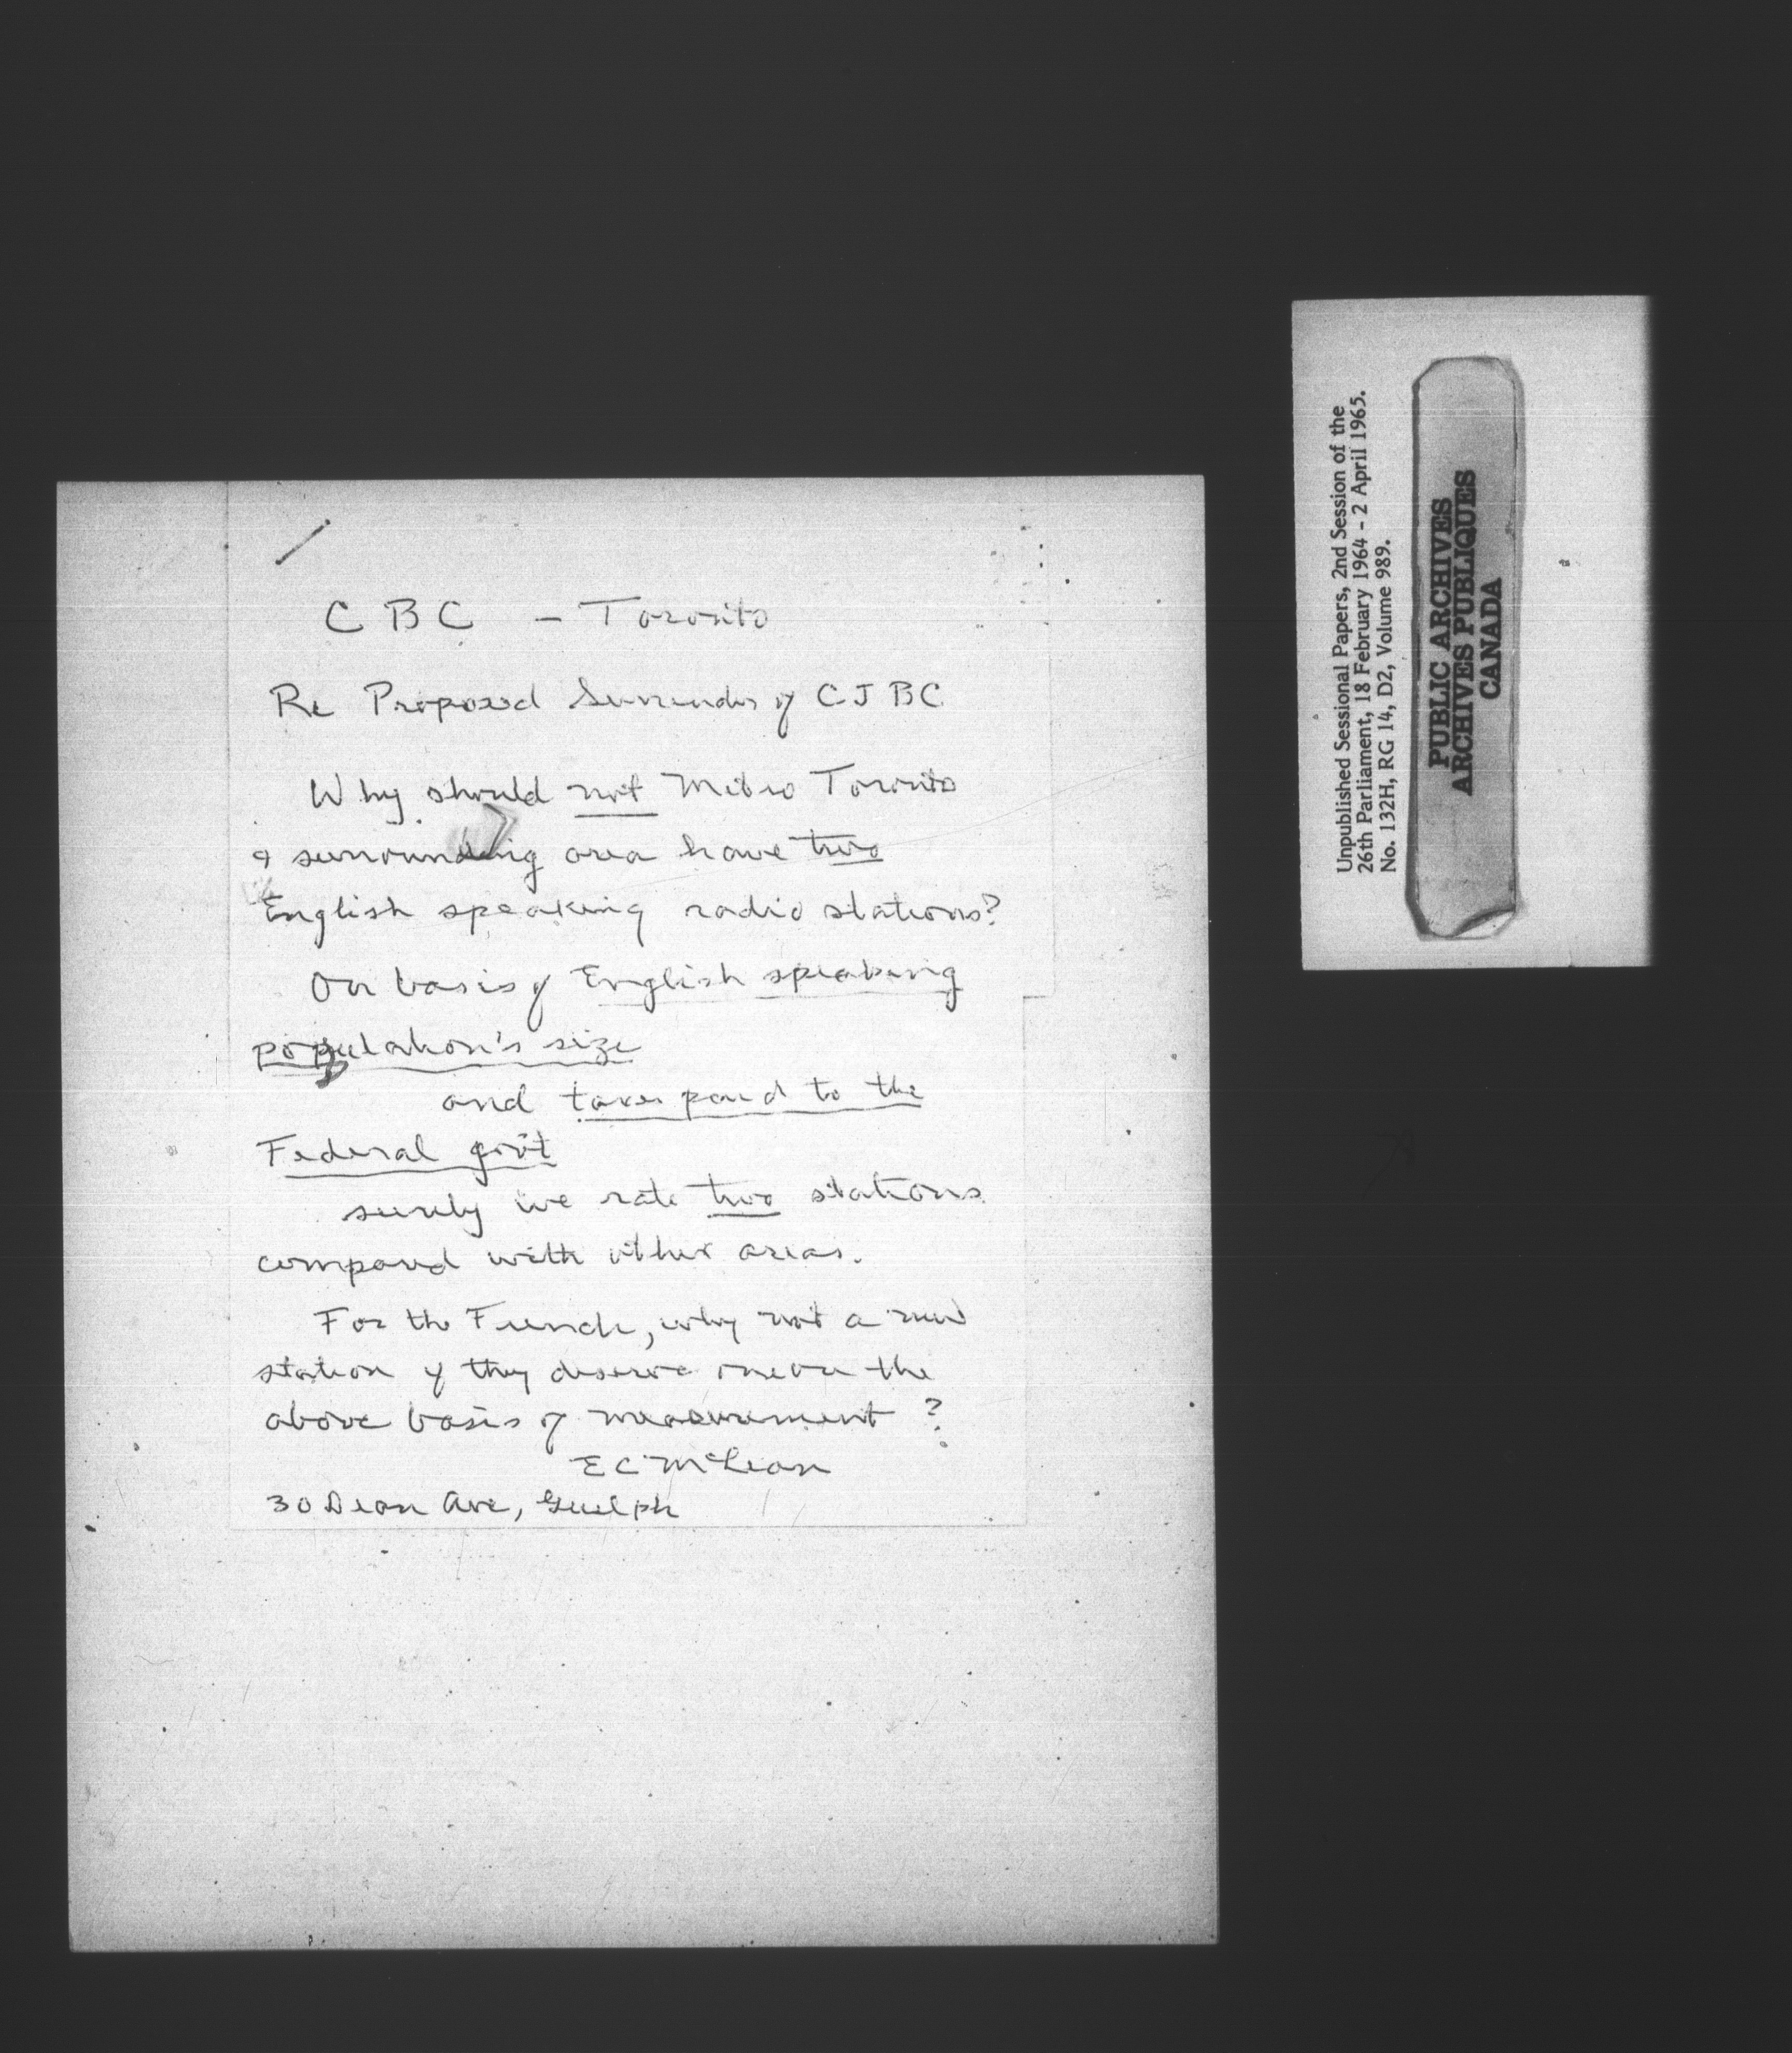 CBC - Toronto
Re Proposed Surrender of CJBC
Why should not Metro Toronto
& surrounding area have two
English speaking radio stations?
On basis of English speaking
population's size
and taxes paid to the
Federal gov't
surely we rate two stations
compared with other areas.
For the French, why not a new
station if they deserve one on the
above basis of measurement?
E C McLean
30 Dean Ave, Guelph
Unpublished Sessional Papers, 2nd Session of the
26th Parliament, 18 February 1964 - 2 April 1965.
No. 132H, RG 14, D2, Volume 989.
PUBLIC ARCHIVES
ARCHIVES PUBLIQUES
CANADA